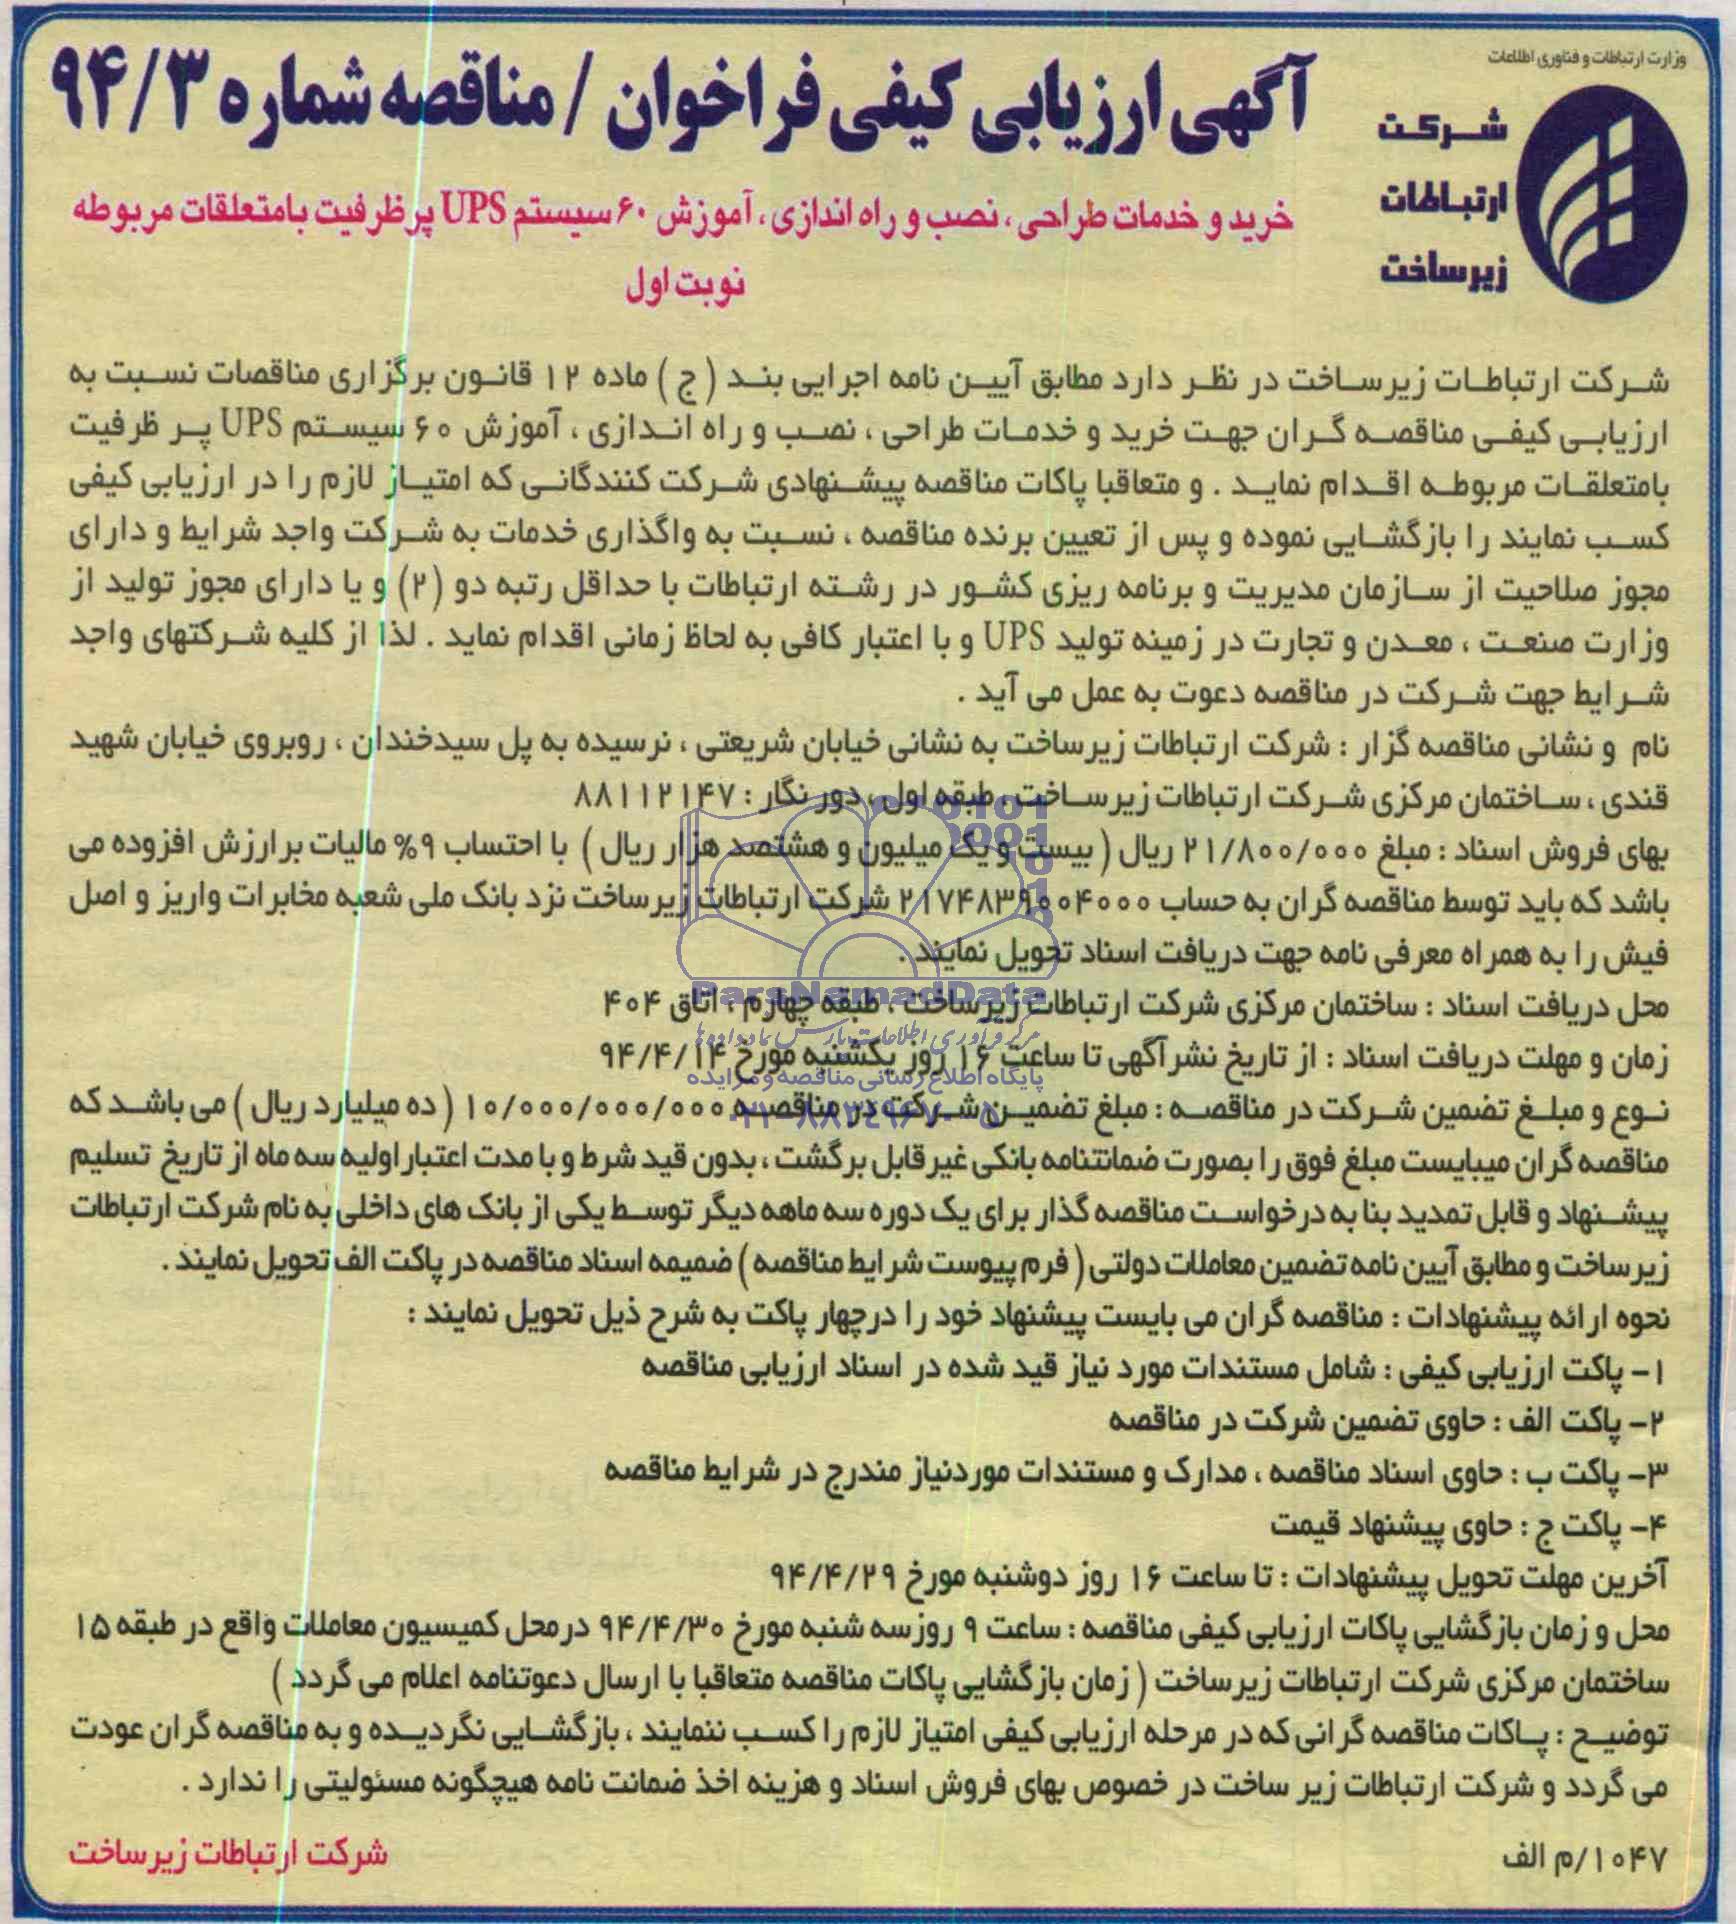 وزارت ارتباطات و فناوری اطلاعات
شرکت
ارتباطات
زیرساخت
آگهی ارزیابی کیفی فراخوان / مناقصه شماره ۹۴/۳
خرید و خدمات طراحی ، نصب و راه اندازی ، آموزش ۶۰ سیستم UPS پر ظرفیت بامتعلقات مربوطه
نوبت اول
شرکت ارتباطات زیرساخت در نظر دارد مطابق آیین نامه اجرایی بند ( ج ) ماده ۱۲ قانون برگزاری مناقصات نسبت به
ارزیابی کیفی مناقصه گران جهت خرید و خدمات طراحی ، نصب و راه اندازی ، آموزش ۶۰ سیستم UPS پر ظرفیت
بامتعلقات مربوطه اقدام نماید . و متعاقبا پاکات مناقصه پیشنهادی شرکت کنندگانی که امتیاز لازم را در ارزیابی کیفی
کسب نمایند را بازگشایی نموده و پس از تعیین برنده مناقصه ، نسبت به واگذاری خدمات به شرکت واجد شرایط و دارای
مجوز صلاحیت از سازمان مدیریت و برنامه ریزی کشور در رشته ارتباطات با حداقل رتبه دو (۲) و یا دارای مجوز تولید از
وزارت صنعت ، معدن و تجارت در زمینه تولید UPS و با اعتبار کافی به لحاظ زمانی اقدام نماید . لذا از کلیه شرکتهای واجد
شرایط جهت شرکت در مناقصه دعوت به عمل می آید .
نام و نشانی مناقصه گزار : شرکت ارتباطات زیرساخت به نشانی خیابان شریعتی ، نرسیده به پل سیدخندان ، روبروی خیابان شهید
قندی ، ساختمان مرکزی شرکت ارتباطات زیرساخت ، طبقه اول ، دور نگار : ۸۸۱۱۲۱۴۷
بهای فروش اسناد : مبلغ ۲۱/۸۰۰/۰۰۰ ریال ( بیست و یک میلیون و هشتصد هزار ریال ) با احتساب ۹% مالیات بر ارزش افزوده می
باشد که باید توسط مناقصه گران به حساب ۲۱۷۴۸۳۹۰۰۴۰۰۰ شرکت ارتباطات زیرساخت نزد بانک ملی شعبه مخابرات واریز و اصل
فیش را به همراه معرفی نامه جهت دریافت اسناد تحویل نمایند .
ParsNamadData
محل دریافت اسناد : ساختمان مرکزی شرکت ارتباطات زیرساخت ، طبقه چهارم ، اتاق ۴۰۴
مرکز فرآوری اطلاعات پارس نماد داده ها
زمان و مهلت دریافت اسناد : از تاریخ نشر آگهی تا ساعت ۱۶ روز یکشنبه مورخ ۹۴/۴/۱۴
پایگاه اطلاع رسانی مناقصه و مزایده
نوع و مبلغ تضمین شرکت در مناقصه : مبلغ تضمین شرکت در مناقصه ۱۰/۰۰۰/۰۰۰/۰۰۰ ( ده میلیارد ریال ) می باشد که
مناقصه گران میبایست مبلغ فوق را بصورت ضمانتنامه بانکی غیر قابل برگشت ، بدون قید شرط و با مدت اعتبار اولیه سه ماه از تاریخ تسلیم
پیشنهاد و قابل تمدید بنا به درخواست مناقصه گذار برای یک دوره سه ماهه دیگر توسط یکی از بانک های داخلی به نام شرکت ارتباطات
زیرساخت و مطابق آیین نامه تضمین معاملات دولتی ( فرم پیوست شرایط مناقصه ) ضمیمه اسناد مناقصه در پاکت الف تحویل نمایند .
نحوه ارائه پیشنهادات : مناقصه گران می بایست پیشنهاد خود را درچهار پاکت به شرح ذیل تحویل نمایند :
۱- پاکت ارزیابی کیفی : شامل مستندات مورد نیاز قید شده در اسناد ارزیابی مناقصه
۲- پاکت الف : حاوی تضمین شرکت در مناقصه
۳- پاکت ب : حاوی اسناد مناقصه ، مدارک و مستندات موردنیاز مندرج در شرایط مناقصه
۴- پاکت ج : حاوی پیشنهاد قیمت
آخرین مهلت تحویل پیشنهادات : تا ساعت ۱۶ روز دوشنبه مورخ ۹۴/۴/۲۹
محل و زمان بازگشایی پاکات ارزیابی کیفی مناقصه : ساعت ۹ روز سه شنبه مورخ ۹۴/۴/۳۰ در محل کمیسیون معاملات واقع در طبقه ۱۵
ساختمان مرکزی شرکت ارتباطات زیرساخت ( زمان بازگشایی پاکات مناقصه متعاقبا با ارسال دعوتنامه اعلام می گردد )
توضیح : پاکات مناقصه گرانی که در مرحله ارزیابی کیفی امتیاز لازم را کسب ننمایند ، بازگشایی نگردیده و به مناقصه گران عودت
می گردد و شرکت ارتباطات زیر ساخت در خصوص بهای فروش اسناد و هزینه اخذ ضمانت نامه هیچگونه مسئولیتی را ندارد .
۱۰۴۷/م الف
شرکت ارتباطات زیرساخت